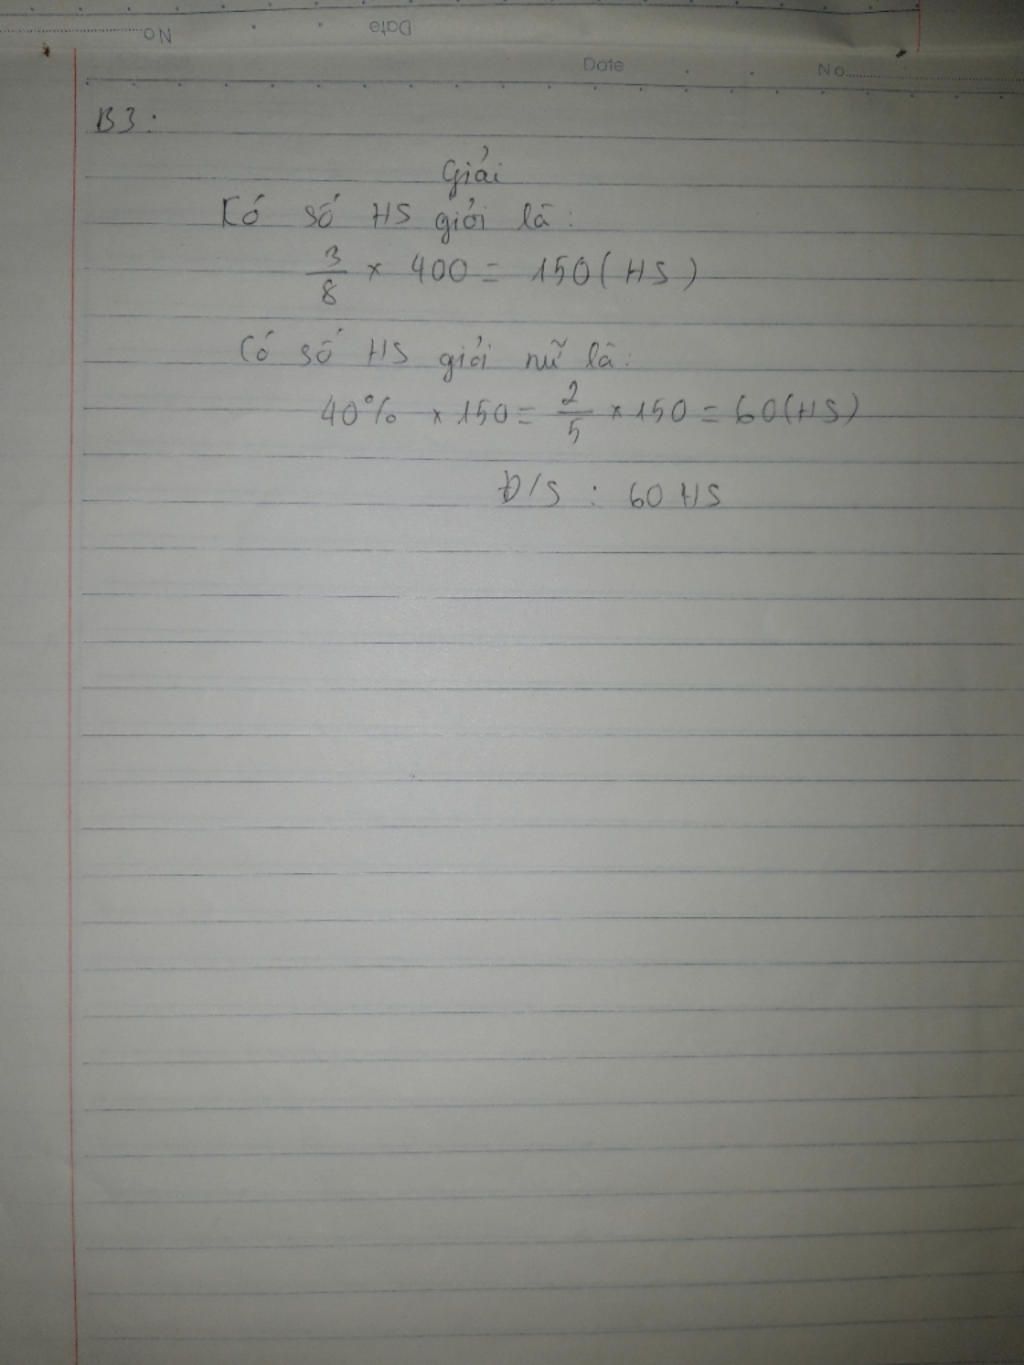 No
Date
Date
No
B3:
Giải
Có số HS giỏi là:
3/8 × 400 = 150 (HS)
Có số HS giỏi nữ là:
40% × 150 = 2/5 × 150 = 60 (HS)
Đ/S : 60 HS